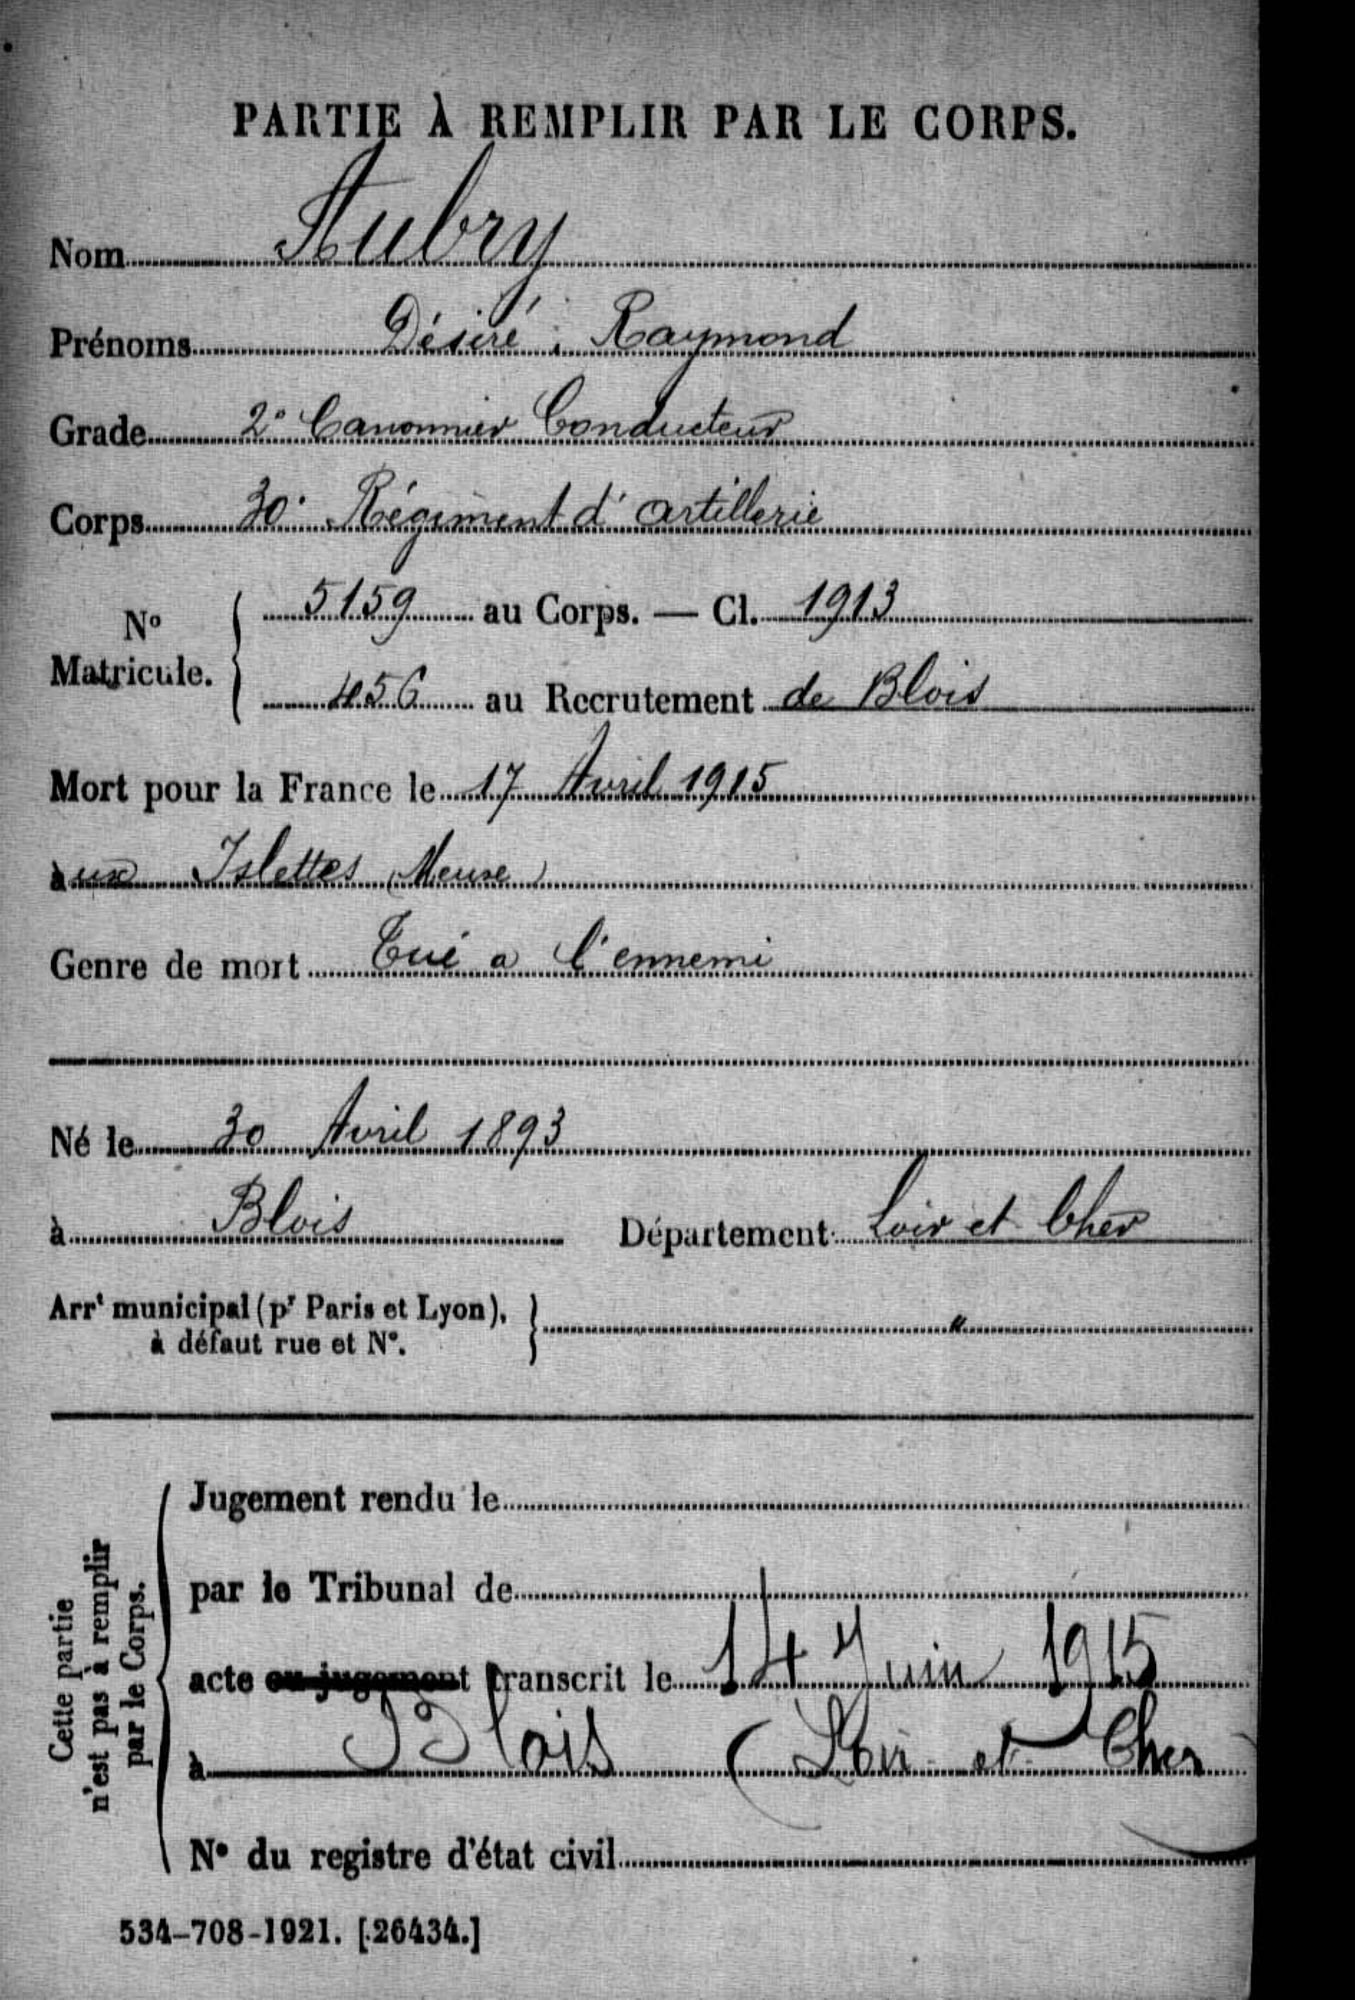 PARTIE À REMPLIR PAR LE CORPS.
Nom Aubry
Prénoms Désiré, Raymond
Grade 2e Canonnier Conducteur
Corps 30e Régiment d'artillerie
No Matricule. { 5159 au Corps. — Cl. 1913
456 au Recrutement de Blois
Mort pour la France le 17 Avril 1915
aux Islettes (Meuse)
Genre de mort Tué a l'ennemi
Né le 30 Avril 1893
à Blois Département Loir et Cher
Arrt municipal (pr Paris et Lyon), à défaut rue et No. } "
Cette partie n'est pas à remplir par le Corps.
Jugement rendu le
par le Tribunal de
acte ou jugement transcrit le 14 Juin 1915
à Blois (Loir et Cher
No du registre d'état civil
534-708-1921. [26434.]